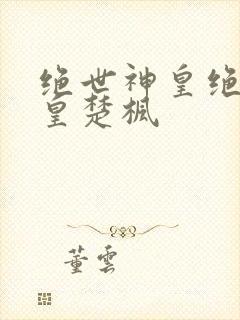 绝世神皇绝
皇楚枫
董云